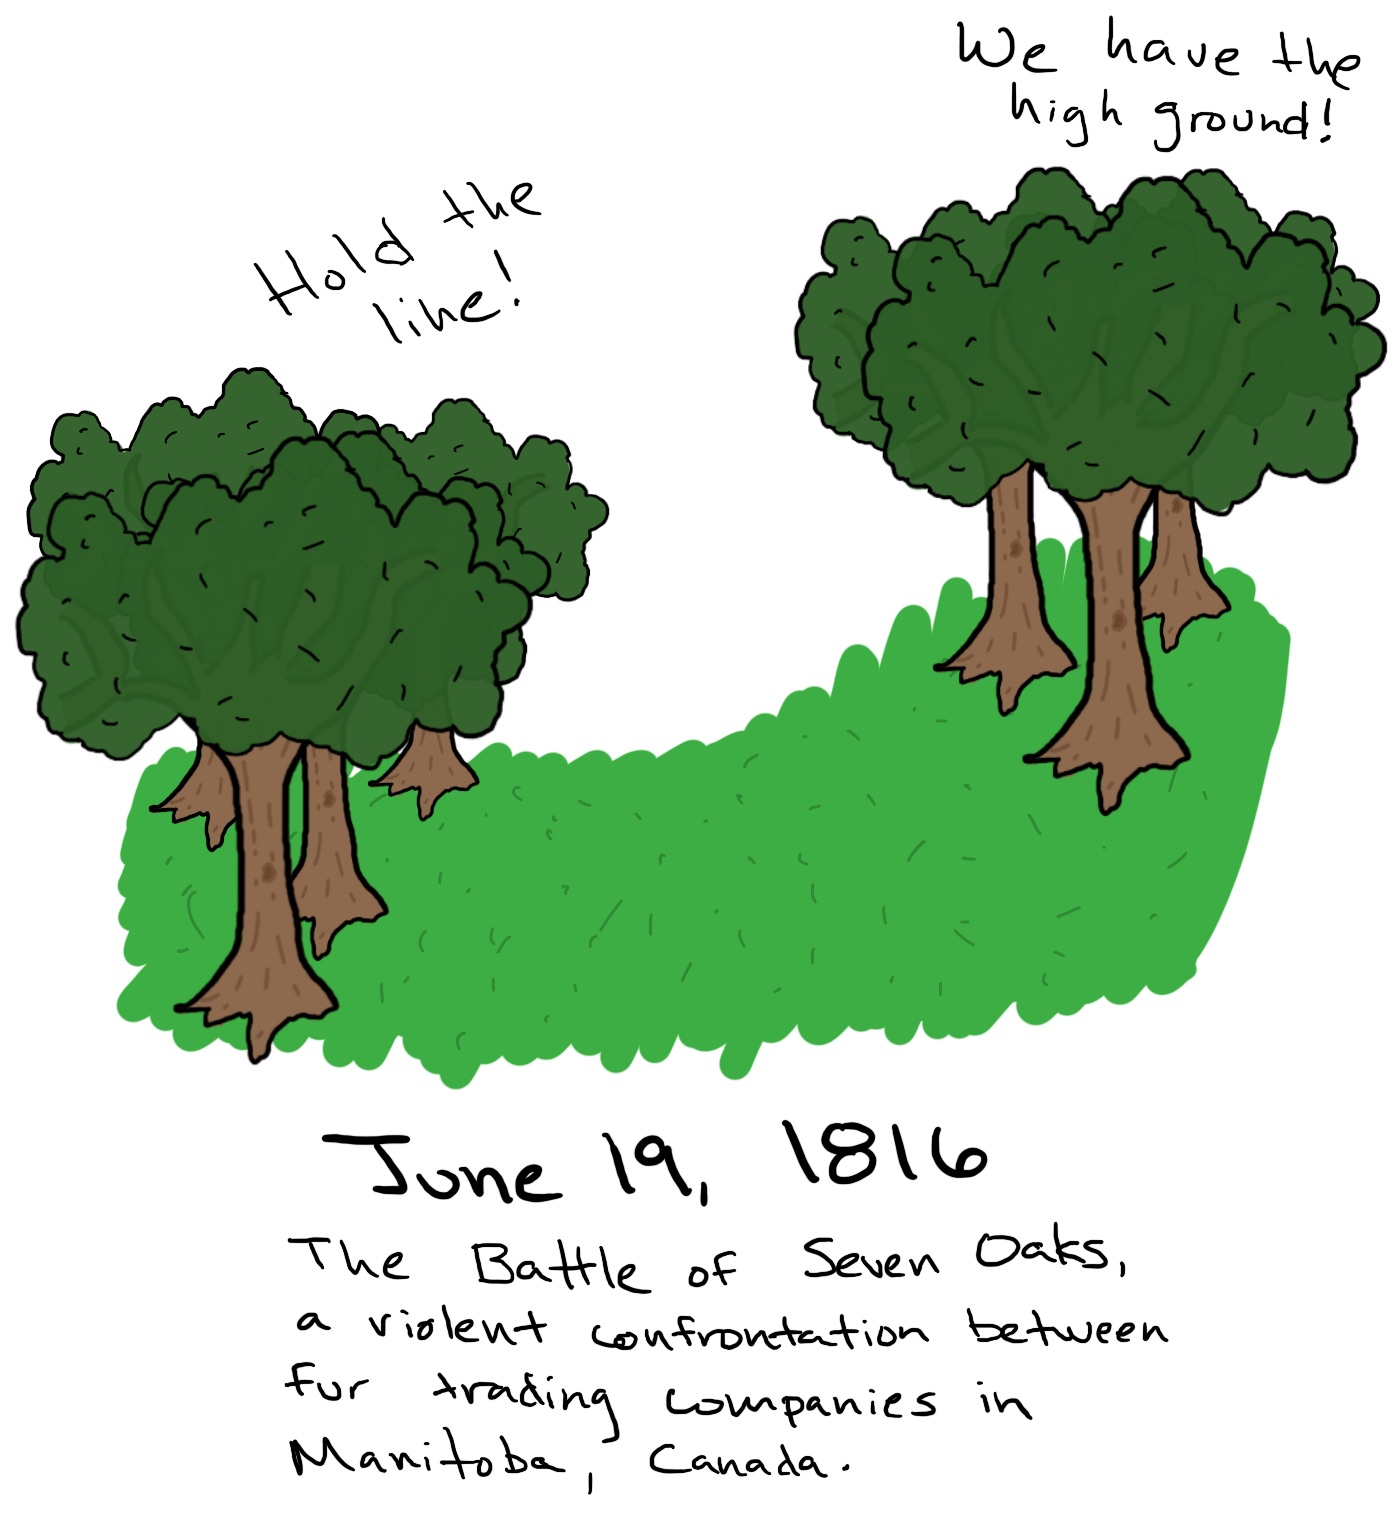 We have the
high ground!
Hold the
line!
June 19, 1816
The Battle of Seven Oaks,
a violent confrontation between
fur trading companies in
Manitoba, Canada.